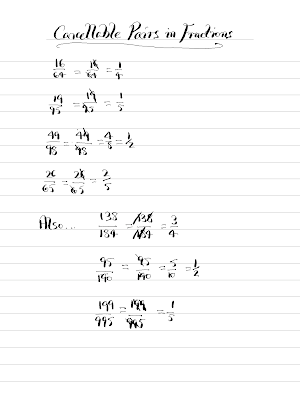 Cancellable Pairs in Fractions
16/64 = 16/64 = 1/4
19/95 = 19/95 = 1/5
49/98 = 49/98 = 4/8 = 1/2
26/65 = 26/65 = 2/5
Also... 138/184 = 138/184 = 3/4
95/190 = 95/190 = 5/10 = 1/2
199/995 = 199/995 = 1/5